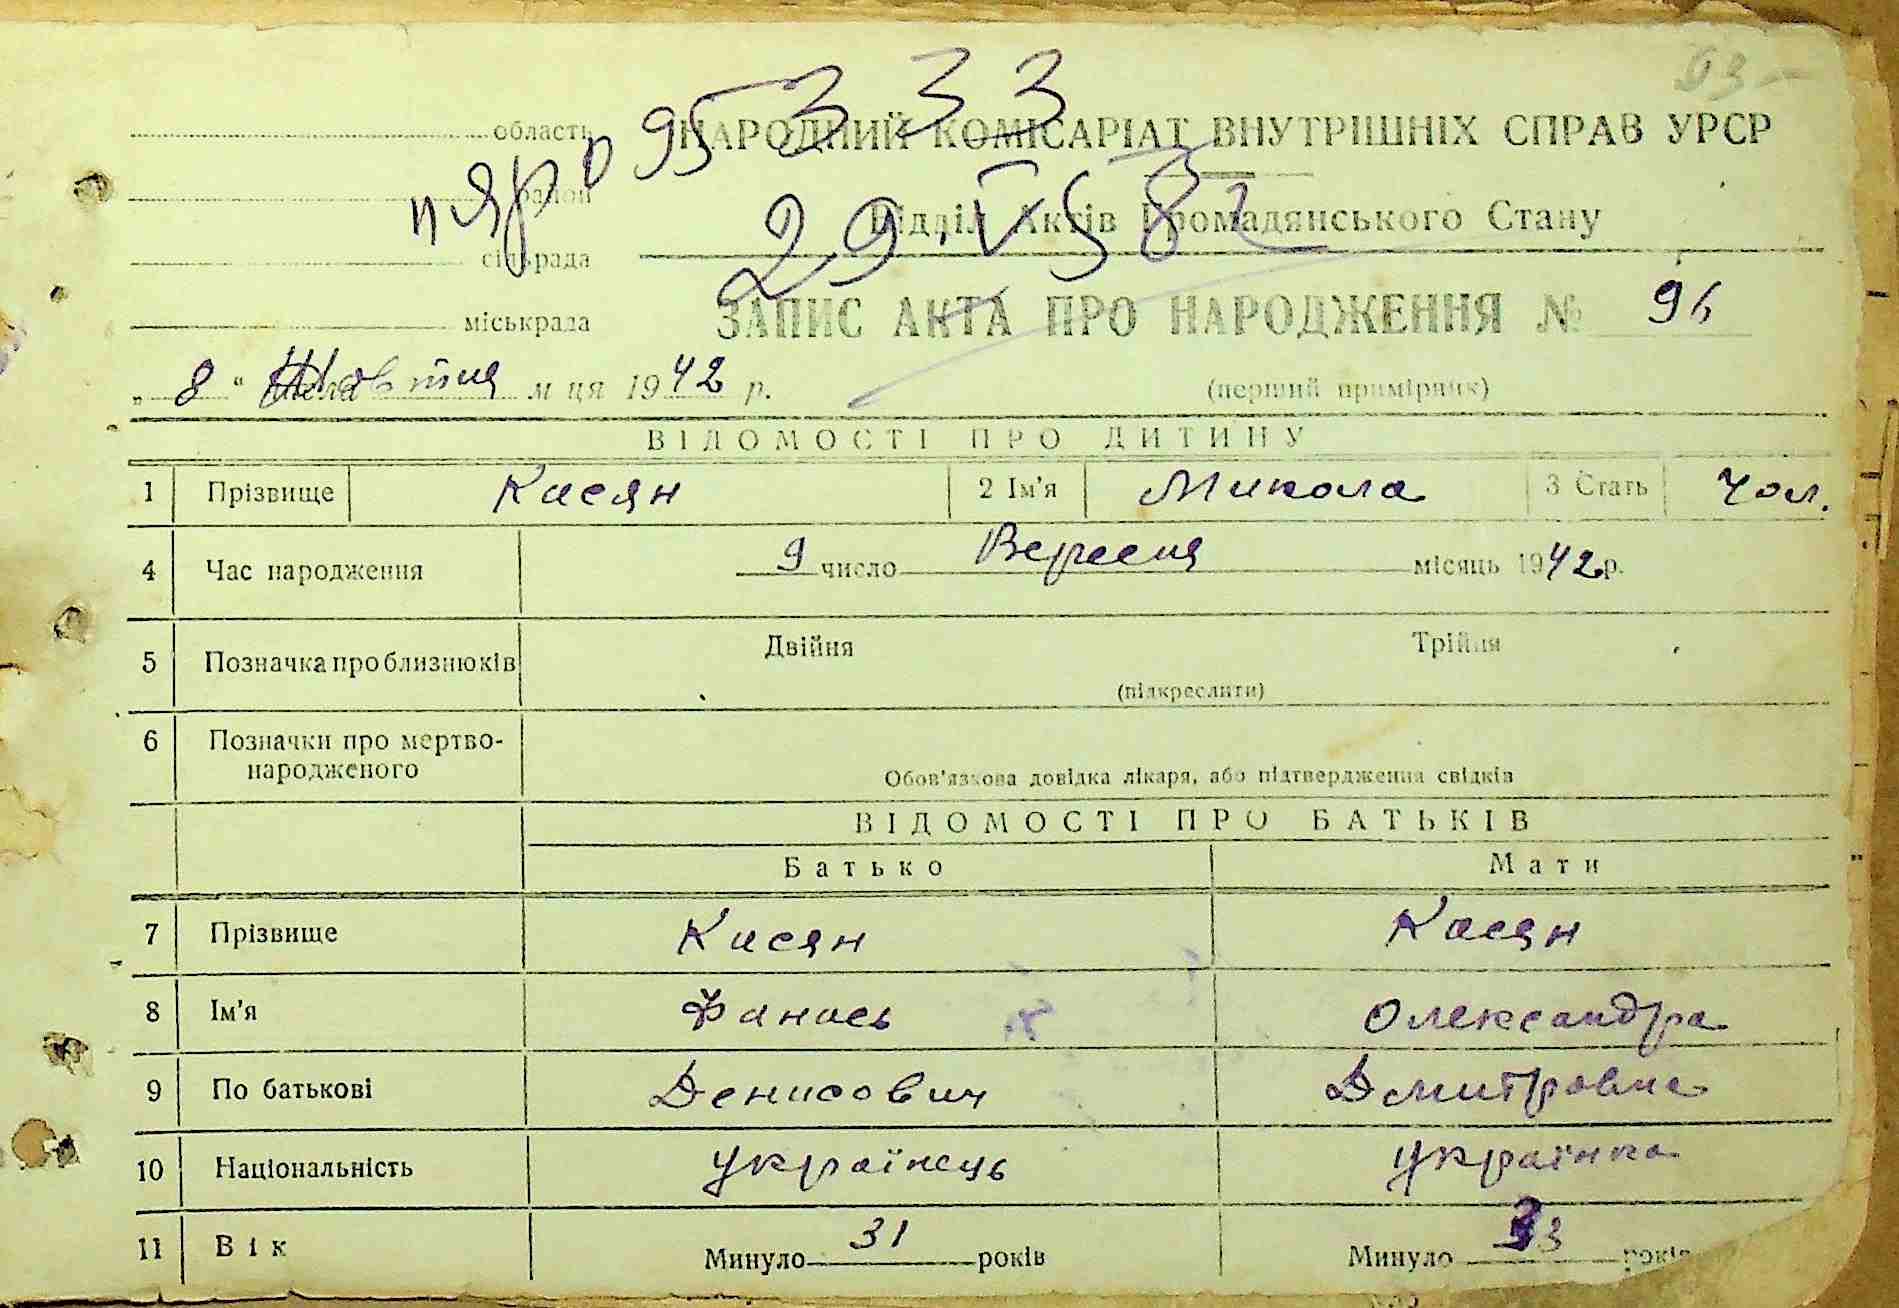 93
область
333
НАРОДНИЙ КОМІСАРІАТ ВНУТРІШНІХ СПРАВ УРСР
район
95
29.V 582
Відділ Актів Громадянського Стану
сільрада
міськрада
ЗАПИС АКТА ПРО НАРОДЖЕННЯ № 96
„ 8 “ Жовтня м ця 1942 р.
(перший примірник)
ВІДОМОСТІ ПРО ДИТИНУ
1 Прізвище Касян 2 Ім'я Микола 3 Стать Чол.
4 Час народження 9 число Вересня місяць 1942 р.
5 Позначка про близнюків Двійня Трійня
(підкреслити)
6 Позначки про мертво-
народженого
Обов'язкова довідка лікаря, або підтвердження свідків
ВІДОМОСТІ ПРО БАТЬКІВ
Батько Мати
7 Прізвище Касян Касян
8 Ім'я Фанась Олександра
9 По батькові Денисович Дмитровна
10 Національність Українець Українка
11 Вік Минуло 31 років Минуло 33 років